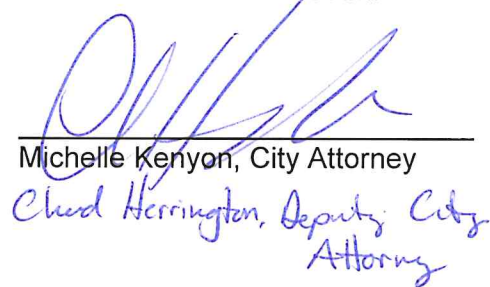 Michelle Kenyon, City Attorney
Chad Herrington, Deputy City
Attorney